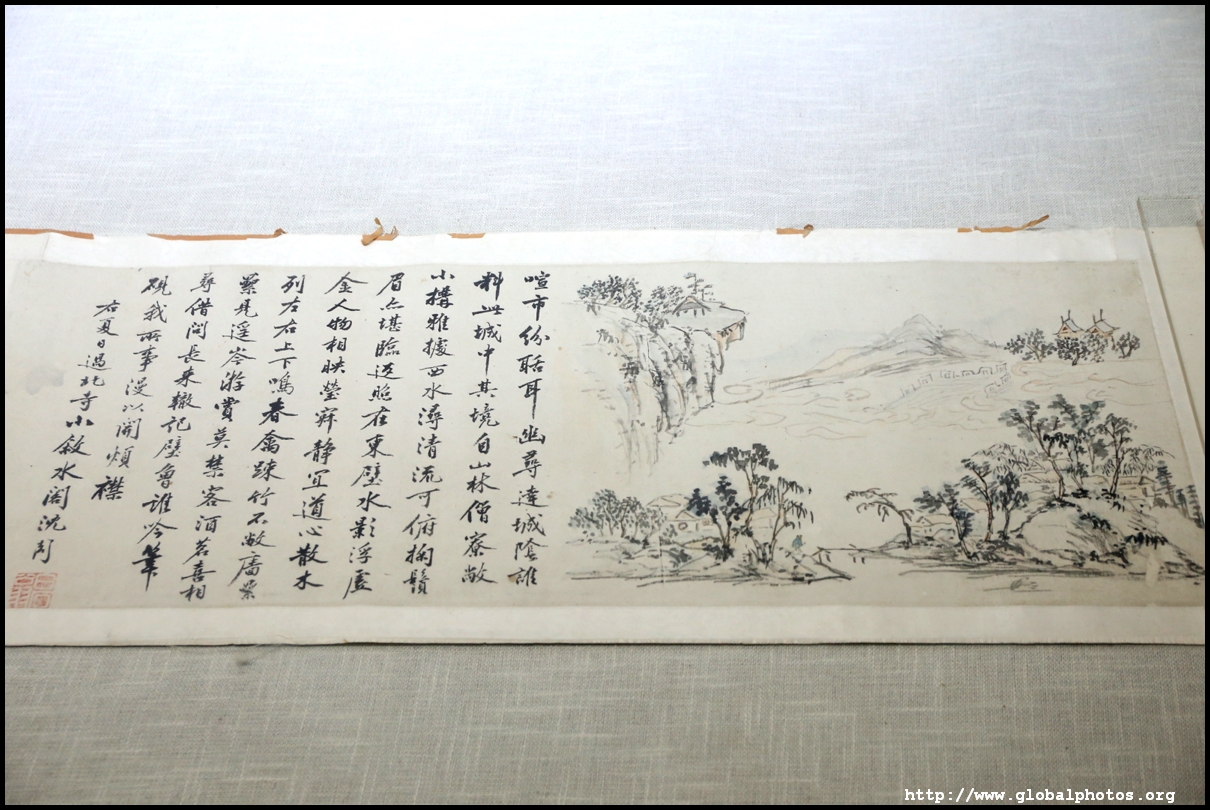 喧市紛聒耳幽尋達城陰誰
料此城中其境自山林僧寮敞
小構雅據西水潯清流可俯掬鬚
眉亦堪臨返照在東壁水影浮虛
金人物相映瑩寂静宜道心散木
列左右上下鳴春禽踈竹不敝
見遥岑游賞莫禁客酒茗喜相
尋借問長来轍記壁魯誰吟筆
硯我所事漫以開煩襟
右夏日過北寺小敘水閣沈周
http://www.globalphotos.org